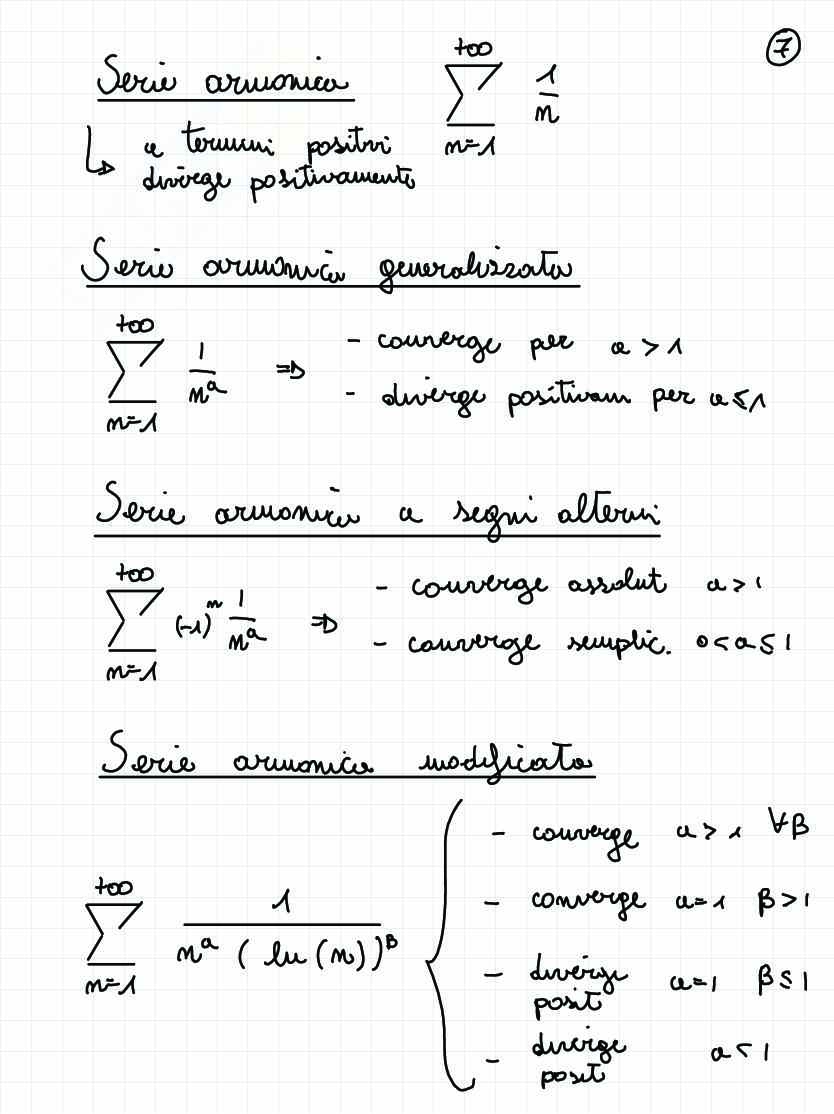 7
Serie armonica
+∞
∑ 1/n
n=1
↳ a termini positivi
diverge positivamente
Serie armonica generalizzata
+∞
∑ 1/n^a ⇒
n=1
- converge per a > 1
- diverge positivam per a ≤ 1
Serie armonica a segni alterni
+∞
∑ (-1)^n 1/n^a ⇒
n=1
- converge assolut a > 1
- converge semplic. 0 < a ≤ 1
Serie armonica modificata
+∞
∑ 1/(n^a (ln(n))^β)
n=1
- converge a > 1 ∀β
- converge a=1 β>1
- diverge a=1 β≤1
posit
- diverge a < 1
posit